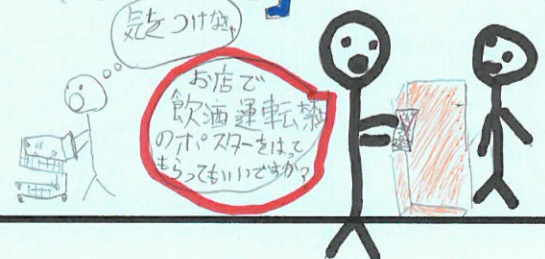 気をつけなきゃ
お店で
飲酒運転禁
のポスターをはって
もらってもいいですか?